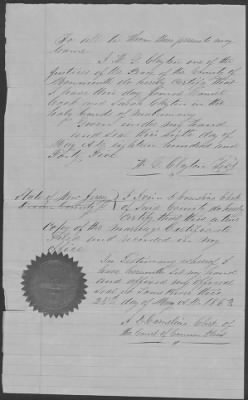 For all to Whom these present may
Come
I H. D. Clayton one of the
Justices of the Peace of the County of
Monmouth do hereby Certify that
I have this day joined Samuel
Cook and Sarah Clayton in the
Holy Bands of Matrimony
Given under my hand
and Seal this Sixth day of
May A.D. Eighteen hundred and
Forty Five
Clayton
State of New Jersey
I Clerk
of the County do hereby
Certify that this is a true
Copy of the Marriage Certificate
filed and recorded in my
office
In Testimony whereof I
have hereunto Set my hand
and affixed my official
Seal at Toms River this
day of May A.D. 1863
Clerk of
the Court of Common Pleas